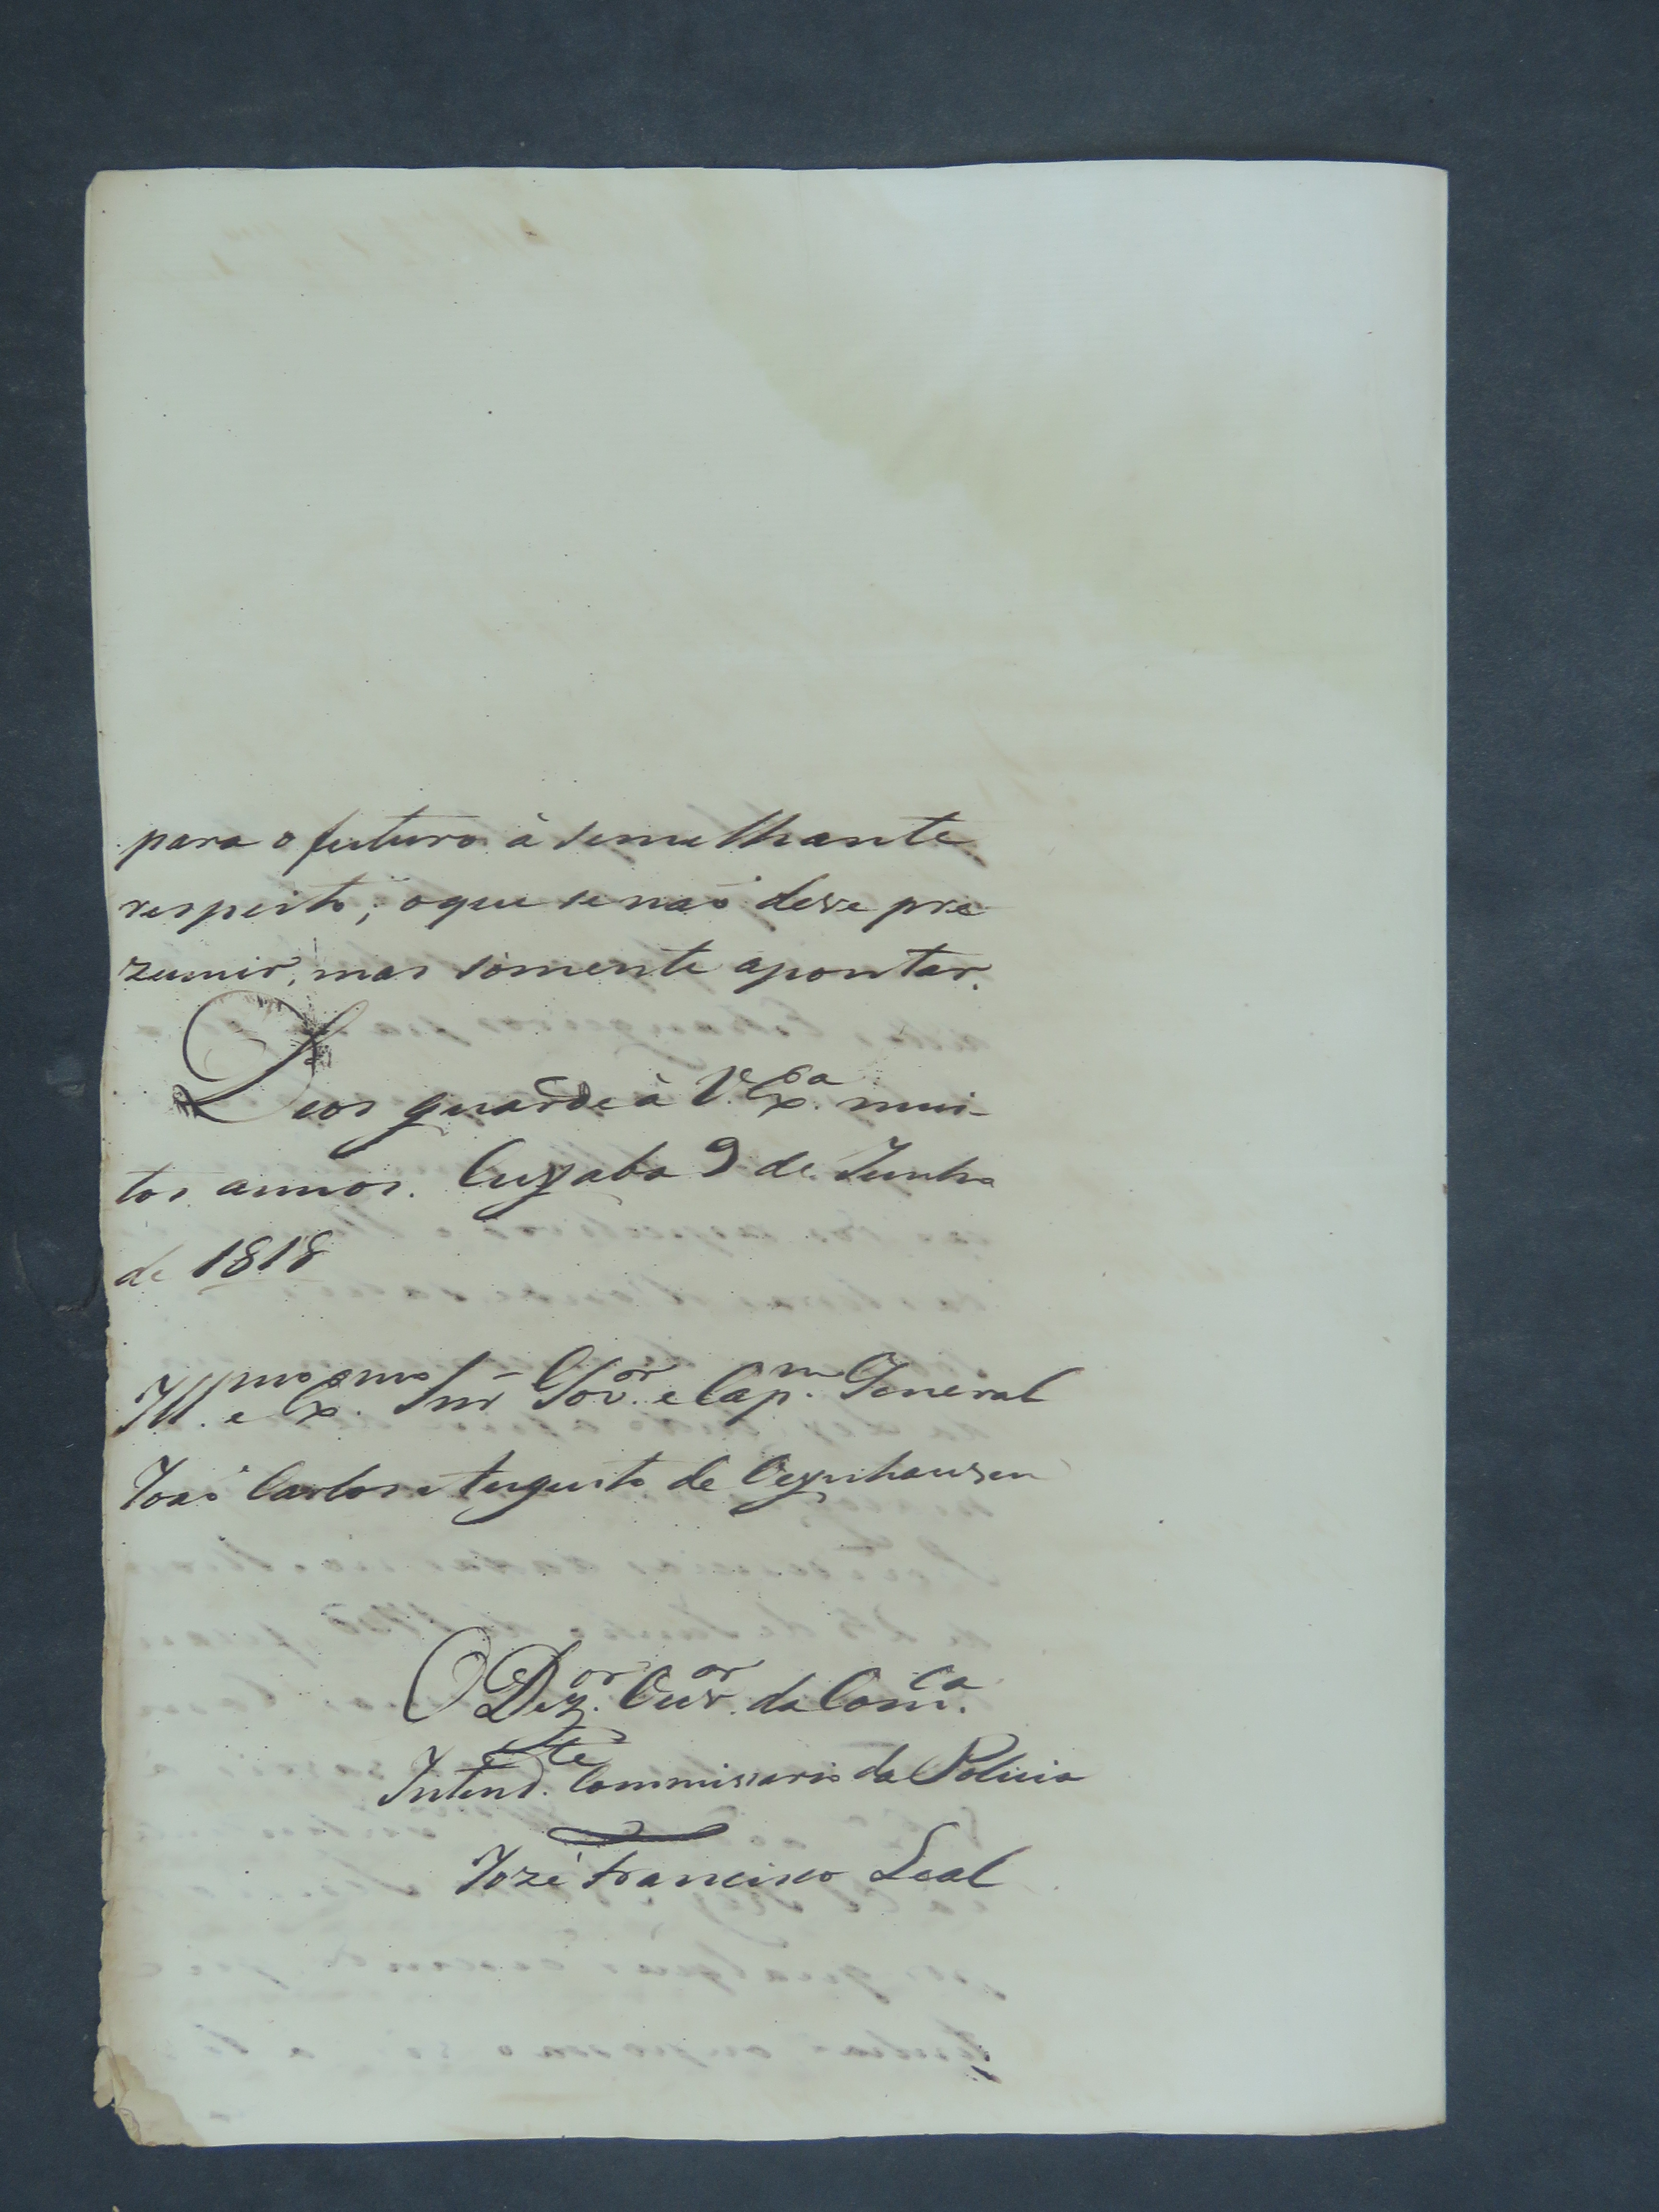 para o futuro à semelhante
respeito; oque se naõ deve pre
zumir, mas sómente apontar.
Deos guarde à V. Ex.ª mui-
tos annos. Cuyaba 9 de Junho
de 1818
Ill.mo e Ex.mo Snr Gov.or e Cap.m General
Joaõ Carlos Augusto de Oeynhausen
O Dez.or Ouv.or da Com.ca
Intend.te Commissario da Policia
Jozé Francisco Leal